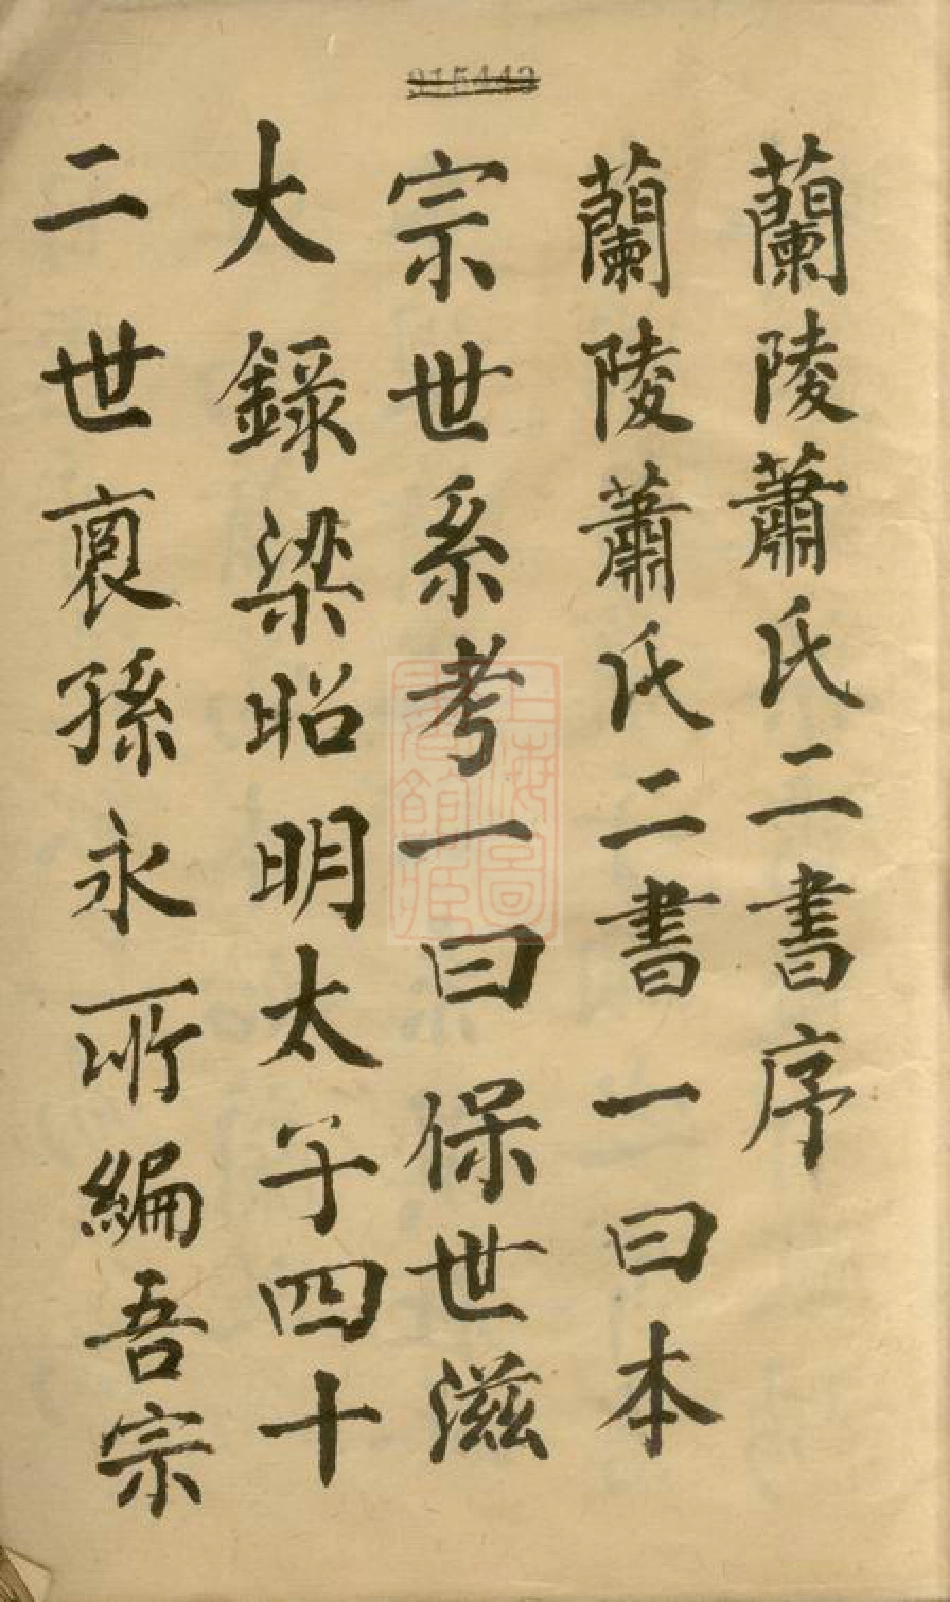 蘭陵蕭氏二書序
蘭陵蕭氏二書一曰本
宗世系考一曰保世滋
大錄梁昭明太子四十
二世裔孫永所編吾宗
上海圖書館藏